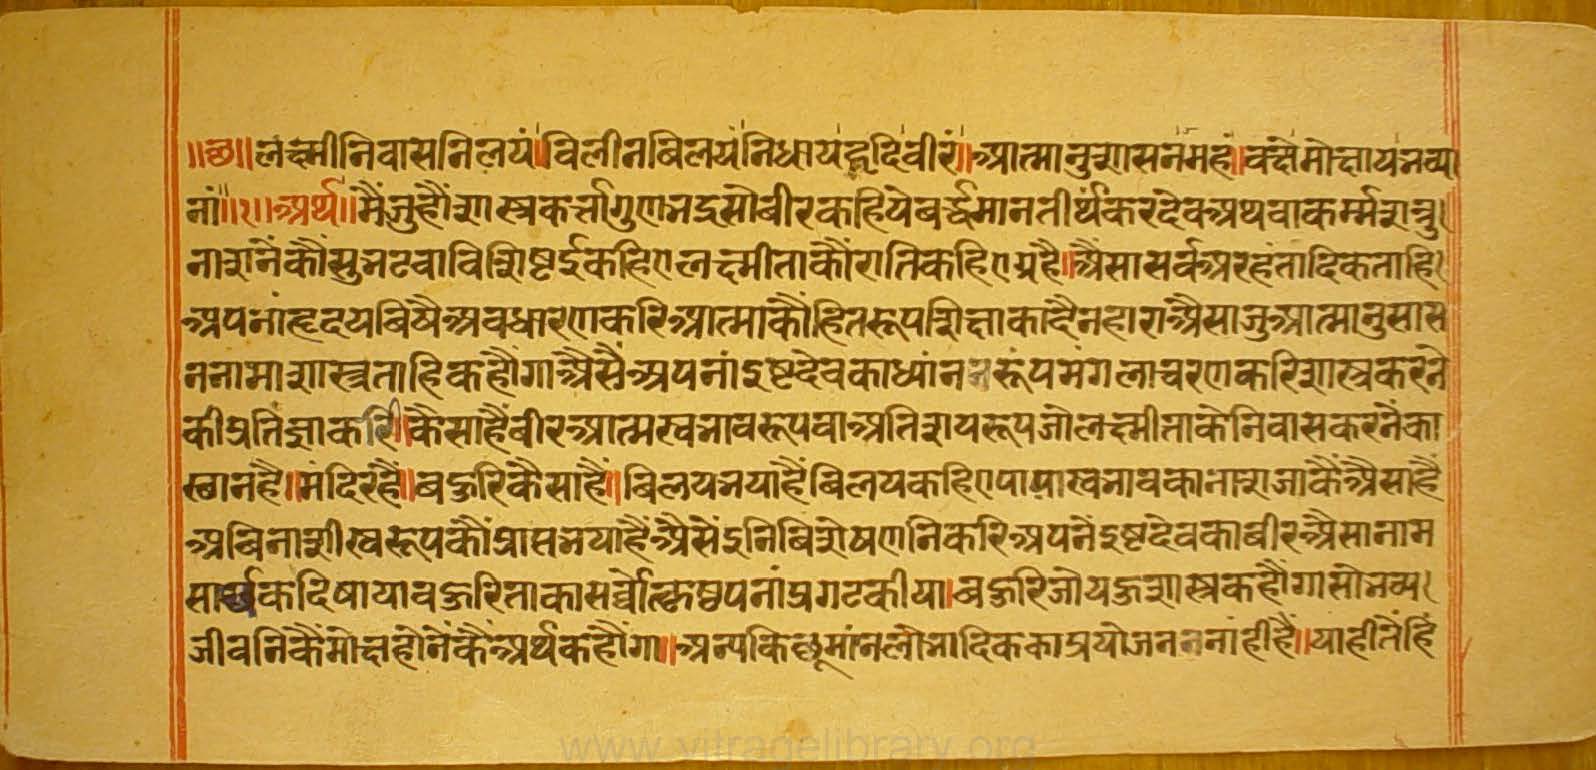 ॥छ॥लक्ष्मीनिवासनिलयं॥विलीनबिलयंनिधायहृदिवीरं॥आत्मानुशासनमहं॥वक्ष्येमोक्षायभव्या
नां॥१॥अर्थ॥मैंजुहौंशास्त्रकर्त्तागुणभद्रसोबीरकहियेबर्द्धमानतीर्थंकरदेवअथवाकर्म्मशत्रु
नाशनेंकौंसुभटवाविशिष्टईकहिएलक्ष्मीताकौंरातिकहिएग्रहै॥अैसासर्वअरहंतादिकताहि
अपनांहृदयबिषैअवधारणकरिआत्माकौंहितरूपशिक्षाकादैनहाराअैसाजुआत्मानुसास
ननामाशास्त्रताहिकहौंगाअैसैंअपनांइष्टदेवकाध्यांनरूंपमंगलाचरणकरिशास्त्रकरने
कीप्रतिज्ञाकरी॥कैसाहैंबीरआत्मस्वभावरूपवाअतिशयरूपजोलक्ष्मीताकेनिवासकरनेंका
स्थानहै॥मंदिरहै॥बहुरिकैसाहैं॥बिलयभयाहैंबिलयकहिएपापास्वभावकानाशजाकैंअैसाहैं
अबिनाशीस्वरूपकौंप्राप्तभयाहैंअैसेंइनिबिशेषणनिकरिअपनेंइष्टदेवकाबीरअैसानाम
सार्थकदिषायाबहुरिताकासर्व्वोत्कृष्टपनांप्रगटकीया॥बहुरिजोयहुशास्त्रकहौंगासोभव्य
जीवनिकैंमोक्षहोनेंकैंअर्थकहौंगा॥अन्यकिछूमांनलोभादिककाप्रयोजननांहीहैं॥याहीतेंहिं
www.vitragelibrary.org